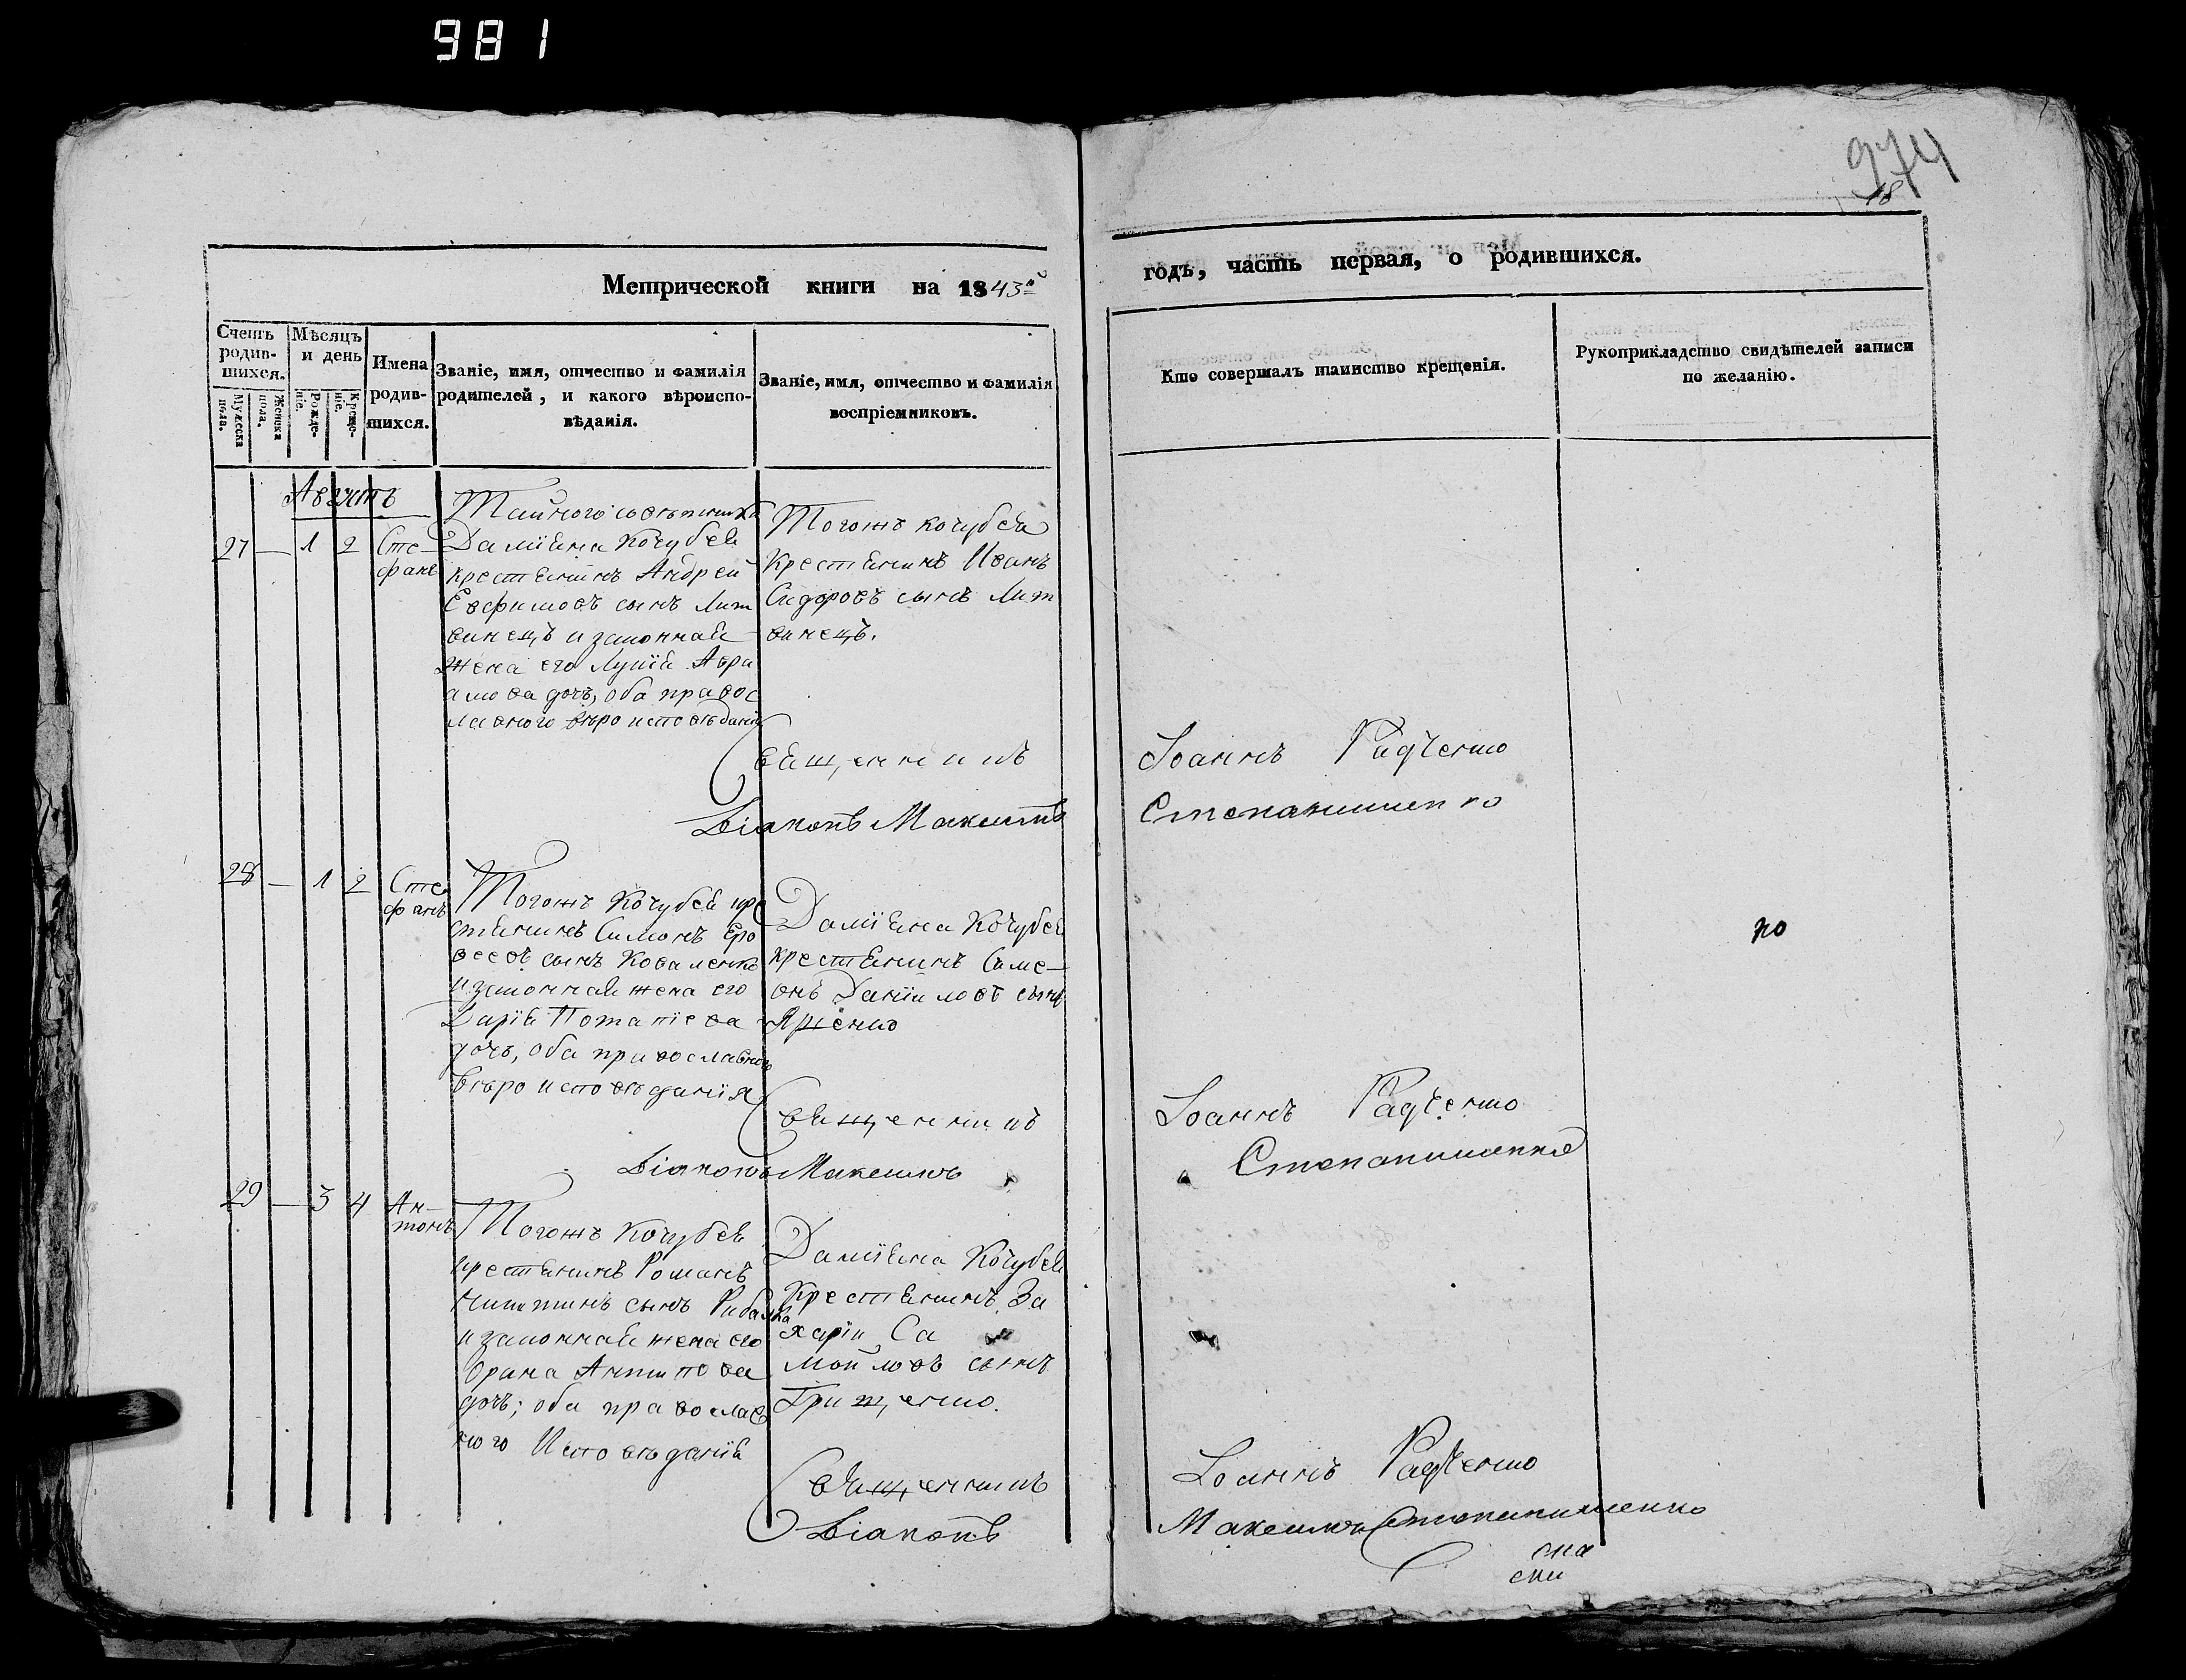 981
974
18
Метрической книги на 1843й
годъ, часть первая, о родившихся.
Счетъ родив-шихся.
Мужеска пола.
Женска пола.
Мѣсяцъ и день
Рожде-ніе.
Креще-ніе.
Имена родив-шихся.
Званіе, имя, отчество и фамилія
родителей, и какого вѣроиспо-
вѣданія.
Званіе, имя, отчество и фамилія
воспріемниковъ.
Кто совершалъ таинство крещенія.
Рукоприкладство свидѣтелей записи
по желанію.
Августъ
27 — 1 2
Сте-
фанъ
Тайного совѣтника
Даміяна Кочубея
крестянинъ Андрей
Евфимовъ сынъ Лит
винецъ и законная
жена его Лукія Авра
амова дочь, оба правос
лавного вѣроисповѣданія
Тогожъ Кочубея
Крестянинъ Иванъ
Сидоровъ сынъ Лит
винецъ.
Священникъ Іоаннъ Радченко
Діаконъ Максимъ Степаниченко
28 — 1 2
Сте
фанъ
Тогожъ Кочубея кре
стянинъ Симонъ Еро
веевъ сынъ Коваленко
и законная жена его
Дарія Потапіева
дочь, оба православного
вѣроисповѣданія
Даміяна Кочубея
крестянинъ Симе-
онъ Даніиловъ сынъ
Священникъ Іоаннъ Радченко
Діаконъ Максимъ Степаниченко
по
29 — 3 4
Ан-
тонъ
Тогожъ Кочубея
крестянинъ Романъ
Никитинъ сынъ Рибалка
и законная жена его
Ирина Антипова
дочь; оба православ
ного Исповѣданія
Даміяна Кочубея
Крестянинъ За
харія Са
мойловъ сынъ
Грищенко.
Священникъ Іоаннъ Радченко
Діаконъ Максимъ Степаниченко